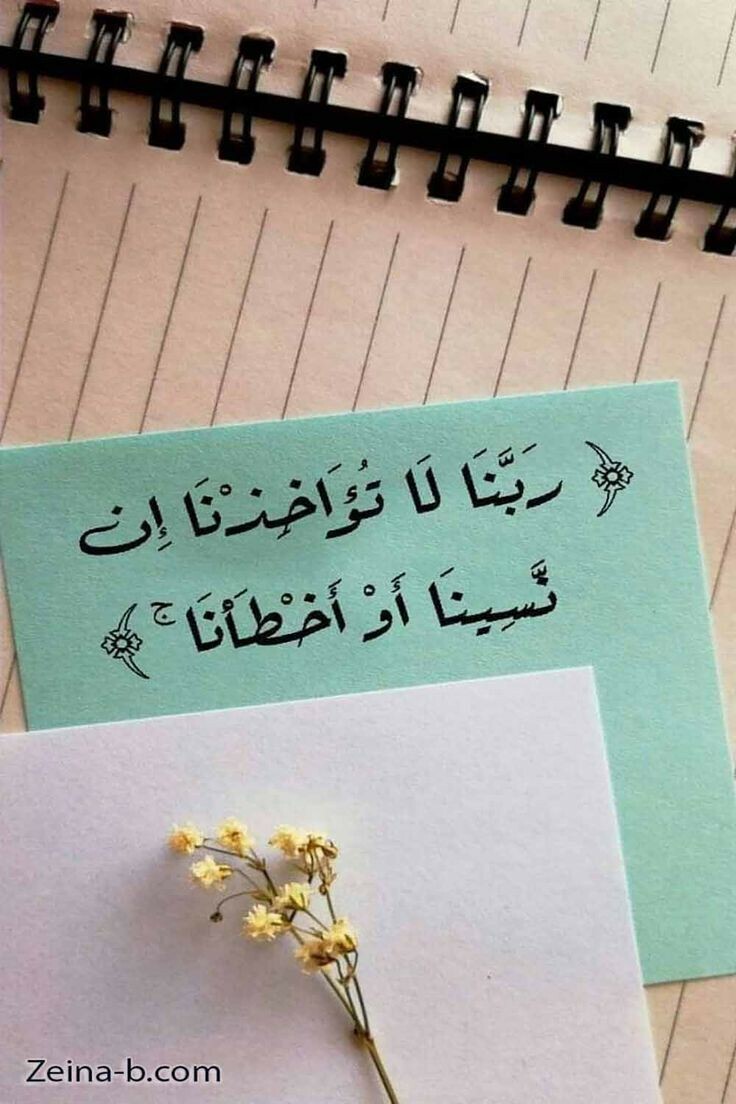 ﴿ رَبَّنَا لَا تُؤَاخِذْنَا إِن
نَّسِينَا أَوْ أَخْطَأْنَا ۚ ﴾
Zeina-b.com